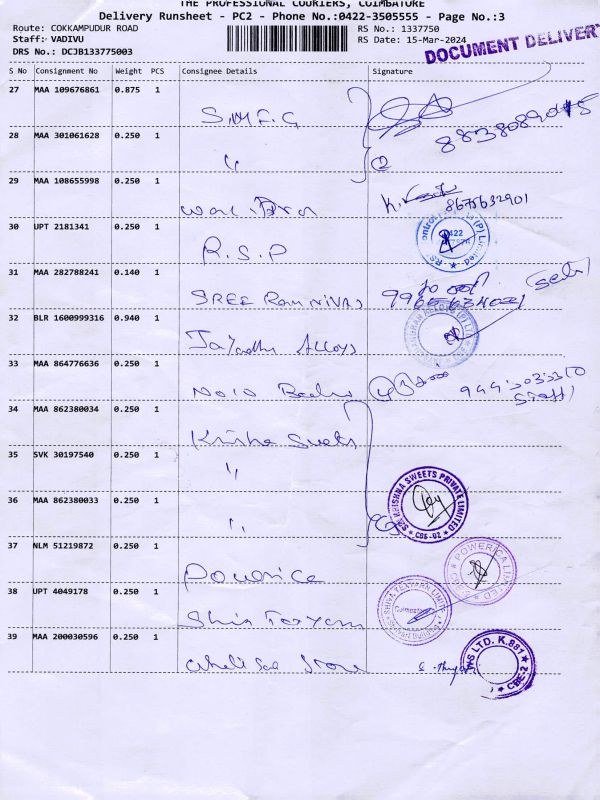 THE PROFESSIONAL COURIERS, COIMBATORE
Delivery Runsheet - PC2 - Phone No.:0422-3505555 - Page No.:3
Route: COKKAMPUDUR ROAD
Staff: VADIVU
DRS No.: DCJB133775003
RS No.: 1337750
RS Date: 15-Mar-2024
DOCUMENT DELIVER
S No Consignment No Weight PCS Consignee Details Signature
27 MAA 109676861 0.875 1
S.M.F.G
8838089015
28 MAA 301061628 0.250 1
"
2
29 MAA 108655998 0.250 1
8675632901
30 UPT 2181341 0.250 1
R.S.P
31 MAA 282788241 0.140 1
SREE Ram NIVAS
32 BLR 1600999316 0.940 1
Jayadhu Alloys
33 MAA 864776636 0.250 1
34 MAA 862380034 0.250 1
Krisha Sweets
35 SVK 30197540 0.250 1
"
36 MAA 862380033 0.250 1
"
SRI KRISHNA SWEETS PRIVATE LIMITED
CBE-02
37 NLM 51219872 0.250 1
Powerica
POWERICA LIMITED
38 UPT 4049178 0.250 1
Shiva Texyarn
SHIVA TEXYARN LIMITED
39 MAA 200030596 0.250 1
Store
LTD. K.881
CBE-2